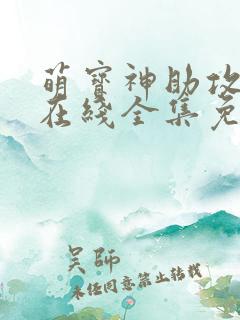 萌宝神助攻
在线全集免
吴師
未经同意禁止转载